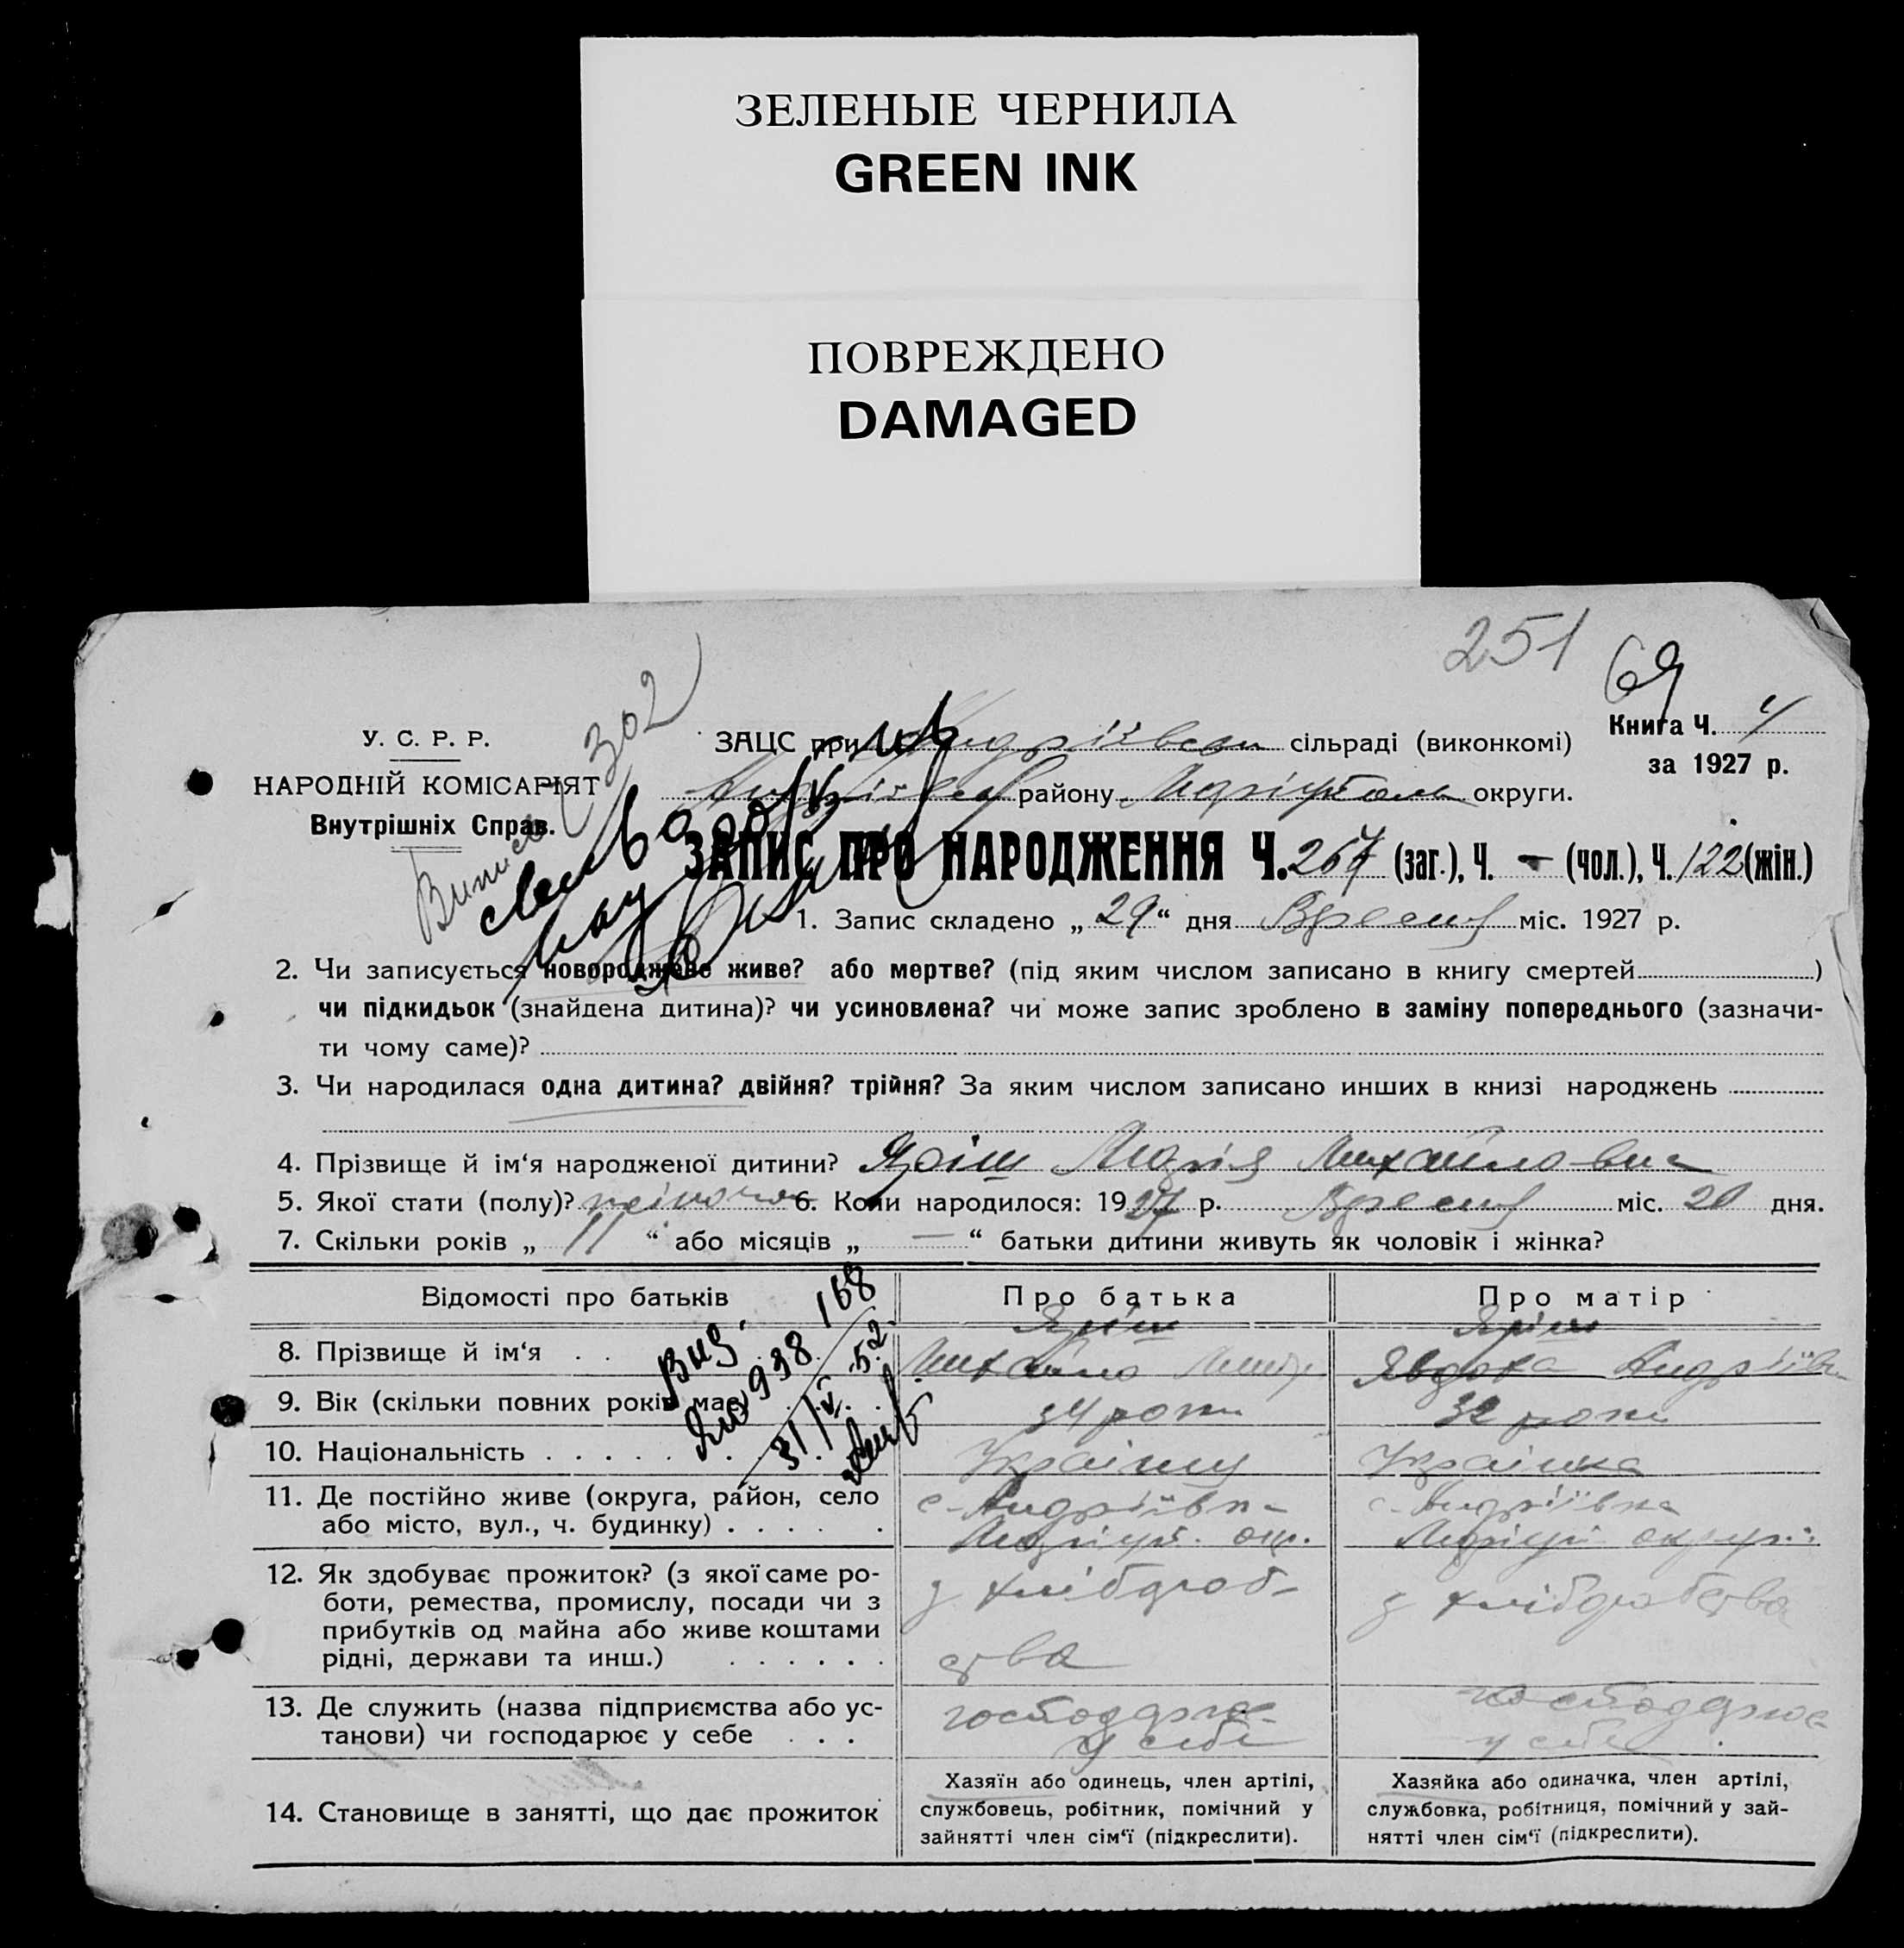 ЗЕЛЕНЫЕ ЧЕРНИЛА
GREEN INK
ПОВРЕЖДЕНО
DAMAGED
251
69
302
У. С. Р. Р.
НАРОДНІЙ КОМІСАРІЯТ
Внутрішніх Справ.
Книга Ч. 4
за 1927 р.
ЗАЦС при Андріївськ сільраді (виконкомі)
Андріївськ району Маріупольськ округи.
ЗАПИС ПРО НАРОДЖЕННЯ Ч. 267 (заг.), Ч. - (чол.), Ч. 122 (жін.)
1. Запис складено „ 29 “ дня Вересня міс. 1927 р.
2. Чи записується новороджене живе? або мертве? (під яким числом записано в книгу смертей )
чи підкидьок (знайдена дитина)? чи усиновлена? чи може запис зроблено в заміну попереднього (зазначи-
ти чому саме)?
3. Чи народилася одна дитина? двійня? трійня? За яким числом записано инших в книзі народжень
4. Прізвище й ім‘я народженої дитини? Яріш Марія Михайловна
5. Якої стати (полу)? жіноча 6. Коли народилося: 1927 р. Вересня міс. 20 дня.
7. Скільки років „ 11 “ або місяців „ — “ батьки дитини живуть як чоловік і жінка?
Відомості про батьків
Про батька
Про матір
8. Прізвище й ім‘я . .
Яріш
Михайло
Яріш
Явдоха Андріївн
9. Вік (скільки повних років має
34 роки
32 роки
10. Національність . . . . .
Українец
Українка
11. Де постійно живе (округа, район, село
або місто, вул., ч. будинку) . . . . .
с. Андріївка
Маріуп. окр.
с. Андріївка
Маріуп. округи
12. Як здобуває прожиток? (з якої саме ро-
боти, ремества, промислу, посади чи з
прибутків од майна або живе коштами
рідні, держави та инш.) . . . . . .
з хлібороб-
ства
з хліборобства
13. Де служить (назва підприємства або ус-
танови) чи господарює у себе . . .
господарює
у себе
господарює
у себе
14. Становище в занятті, що дає прожиток
Хазяїн або одинець, член артілі,
службовець, робітник, помічний у
зайнятті член сім‘ї (підкреслити).
Хазяйка або одиначка, член артілі,
службовка, робітниця, помічний у зай-
нятті член сім‘ї (підкреслити).